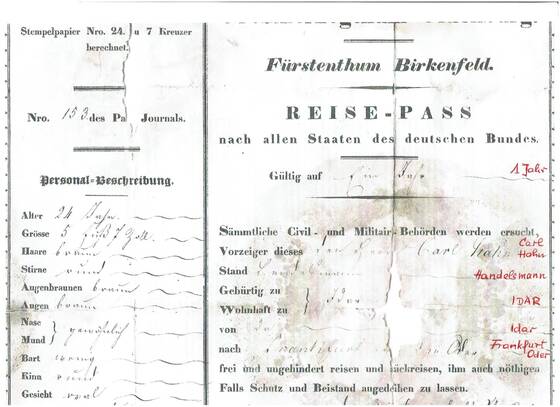 Stempelpapier Nro. 24. u 7 Kreuzer
berechnet.
Nro. 153 des Pa Journals.
Personal-Beschreibung.
Alter 24 Jahr
Grösse 5 Fuß 7 Zoll
Haare braun
Stirne rund
Augenbraunen braun
Augen braun
Nase
Mund } gewöhnlich
Bart wenig
Kinn rund
Gesicht oval
Fürstenthum Birkenfeld.
REISE-PASS
nach allen Staaten des deutschen Bundes.
Gültig auf Ein Jahr 1 Jahr
Sämmtliche Civil- und Militair-Behörden werden ersucht,
Vorzeiger dieses Carl Hahn Carl
Hahn
Stand Handelsmann
Gebürtig zu
Wohnhaft zu } Idar IDAR
von Idar
nach Frankfurt an der Oder Frankfurt
Oder
frei und ungehindert reisen und rückreisen, ihm auch nöthigen
Falls Schutz und Beistand angedeihen zu lassen.